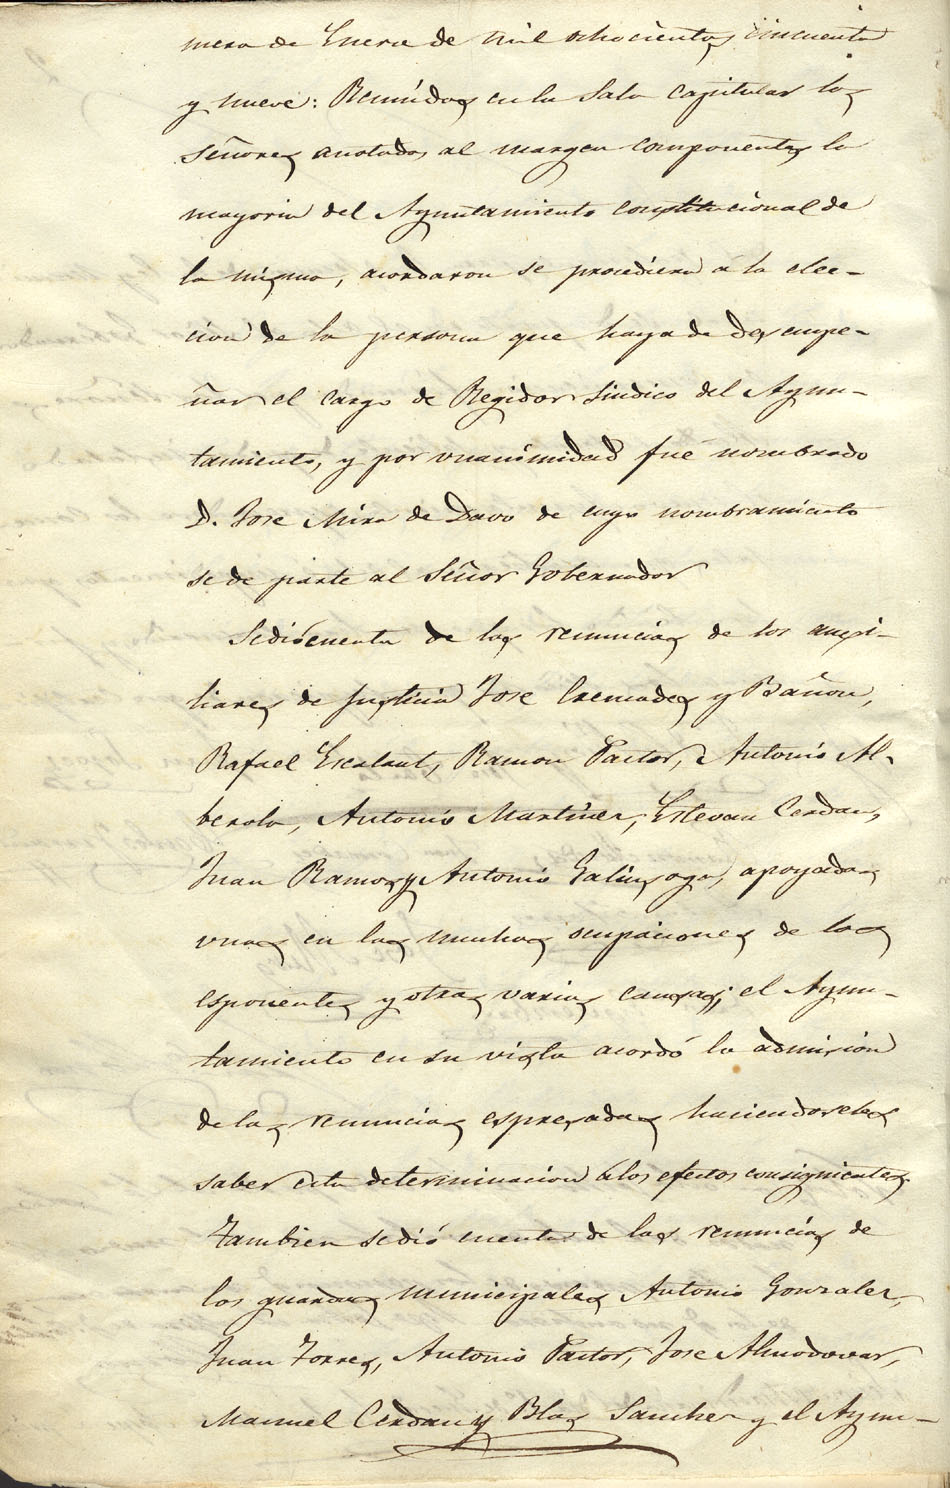 mero de Enero de mil ochocientos cincuenta
y nueve: Reunidos en la Sala Capitular los
señores anotados al margen componentes la
mayoria del Ayuntamiento constitucional de
la misma, acordaron se procediera á la elec-
cion de la persona que haya de desempe-
ñar el cargo de Regidor Sindico del Ayun-
tamiento, y por unanimidad fué nombrado
D. Jose Mira de Davo de cuyo nombramiento
se de parte al Señor Gobernador
Sedió cuenta de las renuncias de los ausi-
liares de Justicia Jose Cremades y Bañon,
Rafael Escalant, Ramon Pastor, Antonio Al-
berola, Antonio Martinez, Estevan Cerdan,
Juan Ramos y Antonio Galinsoga, apoyadas
unas en las muchas ocupaciones de los
esponentes y otras varias causas; el Ayun-
tamiento en su vista acordó la admision
de las renuncias espresadas haciendoseles
saber esta determinacion á los efectos consiguientes.
Tambien sedió cuenta de las renuncias de
los guardas municipales Antonio Gonzalez,
Juan Torres, Antonio Pastor, Jose Almodovar,
Manuel Cerdan y Blas Sanchez y el Ayun-